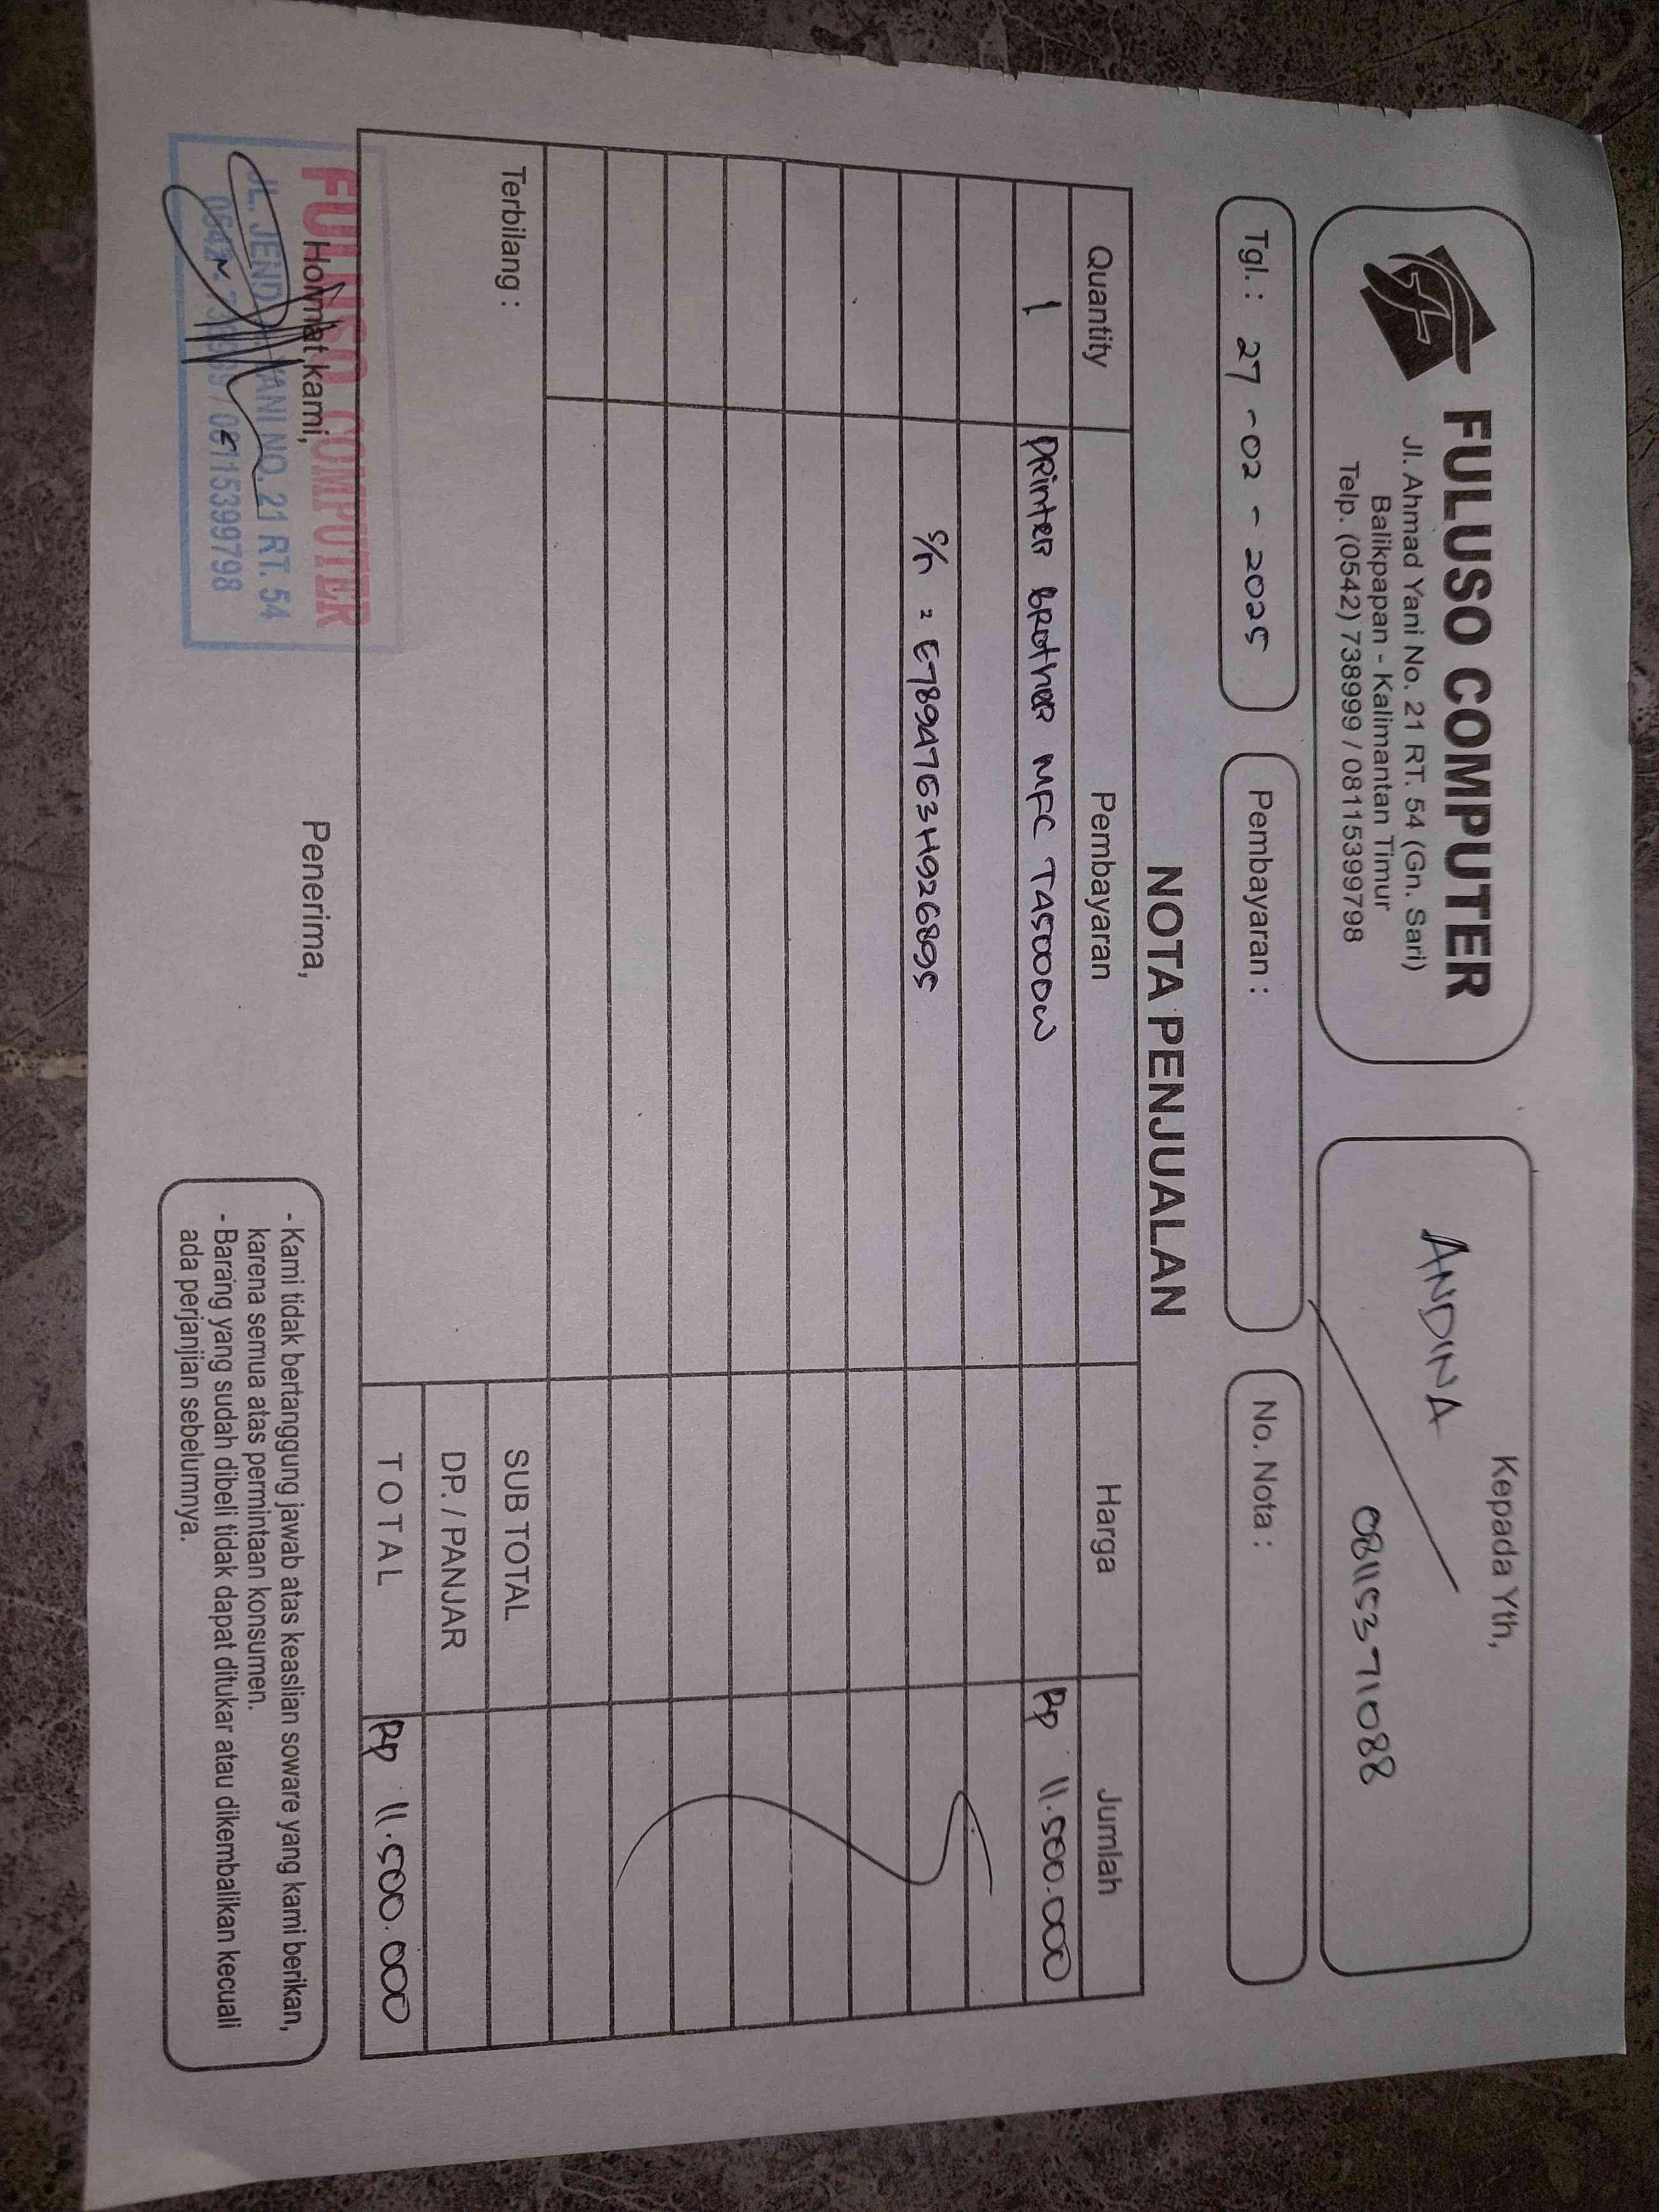 FULUSO COMPUTER
Jl. Ahmad Yani No. 21 RT. 54 (Gn. Sari)
Balikpapan - Kalimantan Timur
Telp. (0542) 738999 / 08115399798
Kepada Yth,
ANDINA
08115371088
Tgl. : 27 - 02 - 2025
Pembayaran :
No. Nota :
NOTA PENJUALAN
Quantity Pembayaran Harga Jumlah
1 Printer Brother MFC T4500DW Rp 11.500.000
S/n = E78947G3H926895
Terbilang :
SUB TOTAL
DP. / PANJAR
TOTAL Rp 11.500.000
Hormat kami,
Penerima,
FULUSO COMPUTER
JL. JEND. A. YANI NO. 21 RT. 54
0542 - 738999 / 08115399798
- Kami tidak bertanggung jawab atas keaslian soware yang kami berikan,
karena semua atas permintaan konsumen.
- Barang yang sudah dibeli tidak dapat ditukar atau dikembalikan kecuali
ada perjanjian sebelumnya.